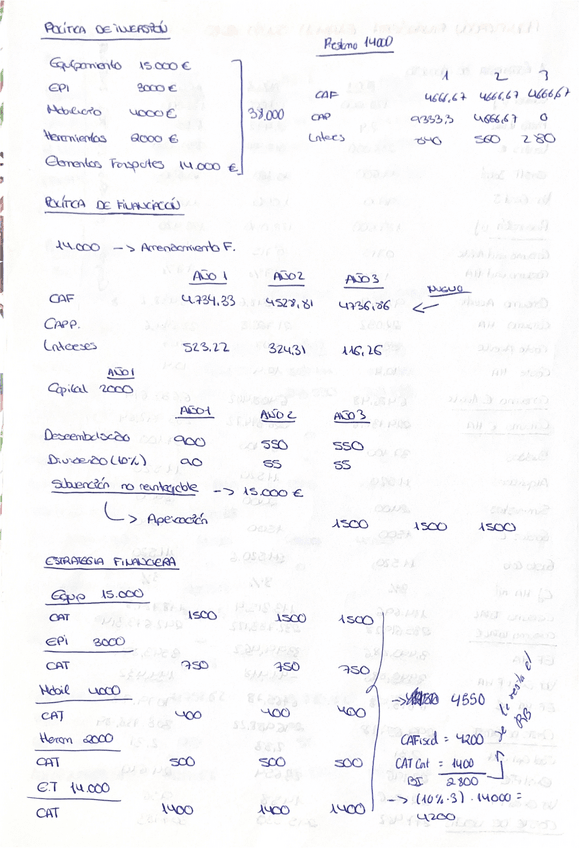 POLÍTICA DE INVERSIÓN
Equipamiento 15000€
EPI 3000€
Mobiliario 4000€
Herramientas 2000€
Elementos Transportes 14.000€
38.000
Préstamo 14000
1 2 3
CAF 4666,67 4666,67 4666,67
CAP 9333,3 4666,67 0
Intereses 840 560 280
POLÍTICA DE FINANCIACIÓN
14.000 -> Arrendamiento F.
AÑO 1 AÑO 2 AÑO 3
CAF 4.734,33 4528,81 4736,86
CAPP.
Intereses 523,22 324,31 116,26
AÑO 1
Capital 2000
AÑO 1 AÑO 2 AÑO 3
Desembolsado 900 550 550
Dividendo (10%) 90 55 55
Subvención no reintegrable -> 15.000€
1500 1500 1500
ESTRATEGIA FINANCIERA
Equip 15.000
CAT 1500 1500 1500
EPI 3000
CAT 750 750 750
Mobil 4000
CAT 400 400 400
Herram 2000
CAT 500 500 500
E.T 14.000
CAT 1400 1400 1400
-> 4550
CAFiscal = 4200
CAT Cont = 1400
BI 2800
-> (10%·3)·14000 =
4200